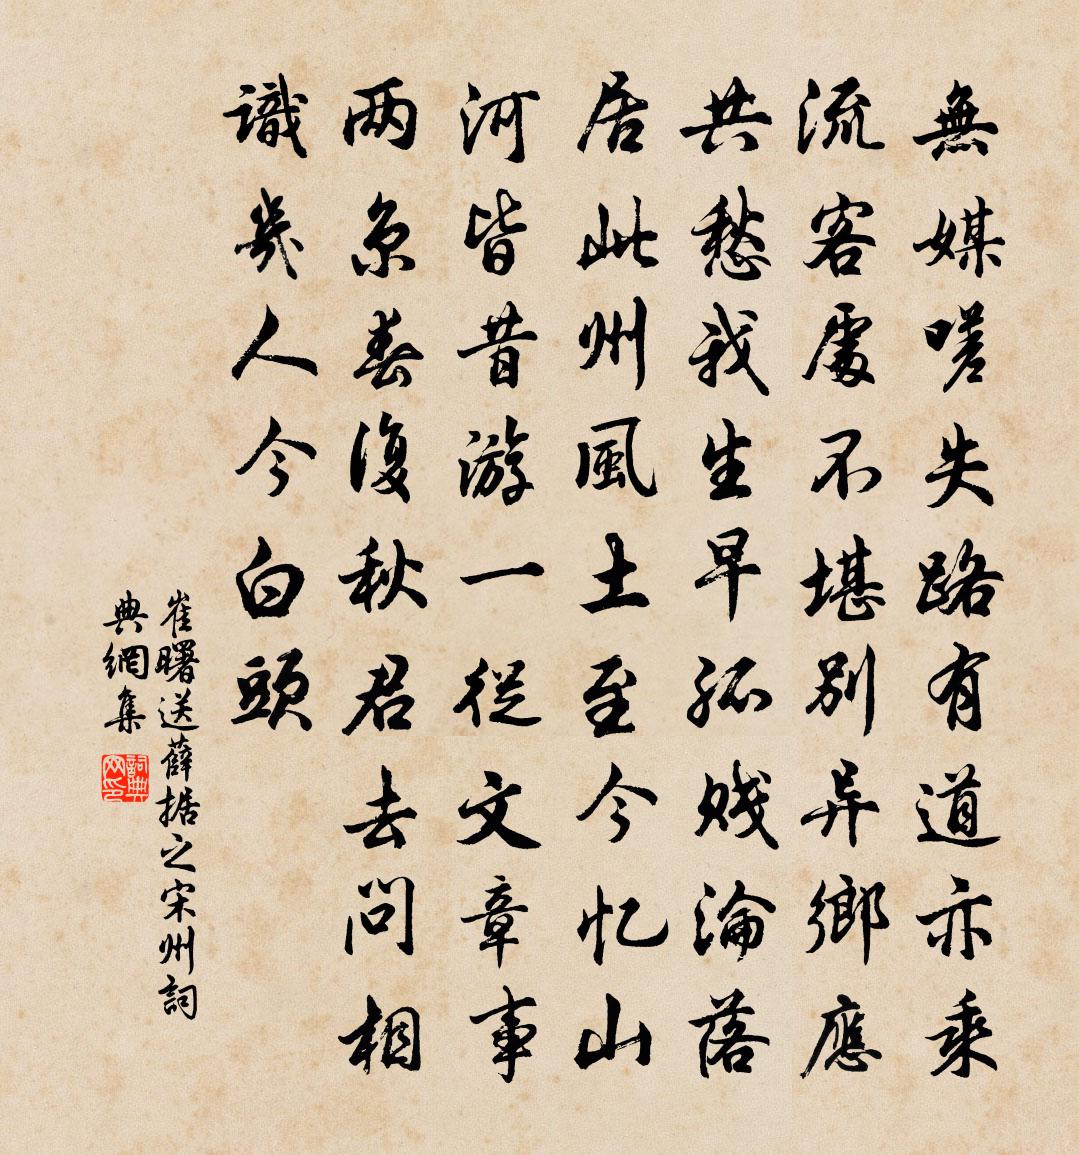 無媒嗟失路有道亦乘
流客處不堪別异鄉應
共愁我生早孤賤淪落
居此州風土至今忆山
河皆昔游一從文章事
两京春復秋君去問相
識幾人今白頭
崔曙送薛据之宋州詞
典網集
詞典
网印